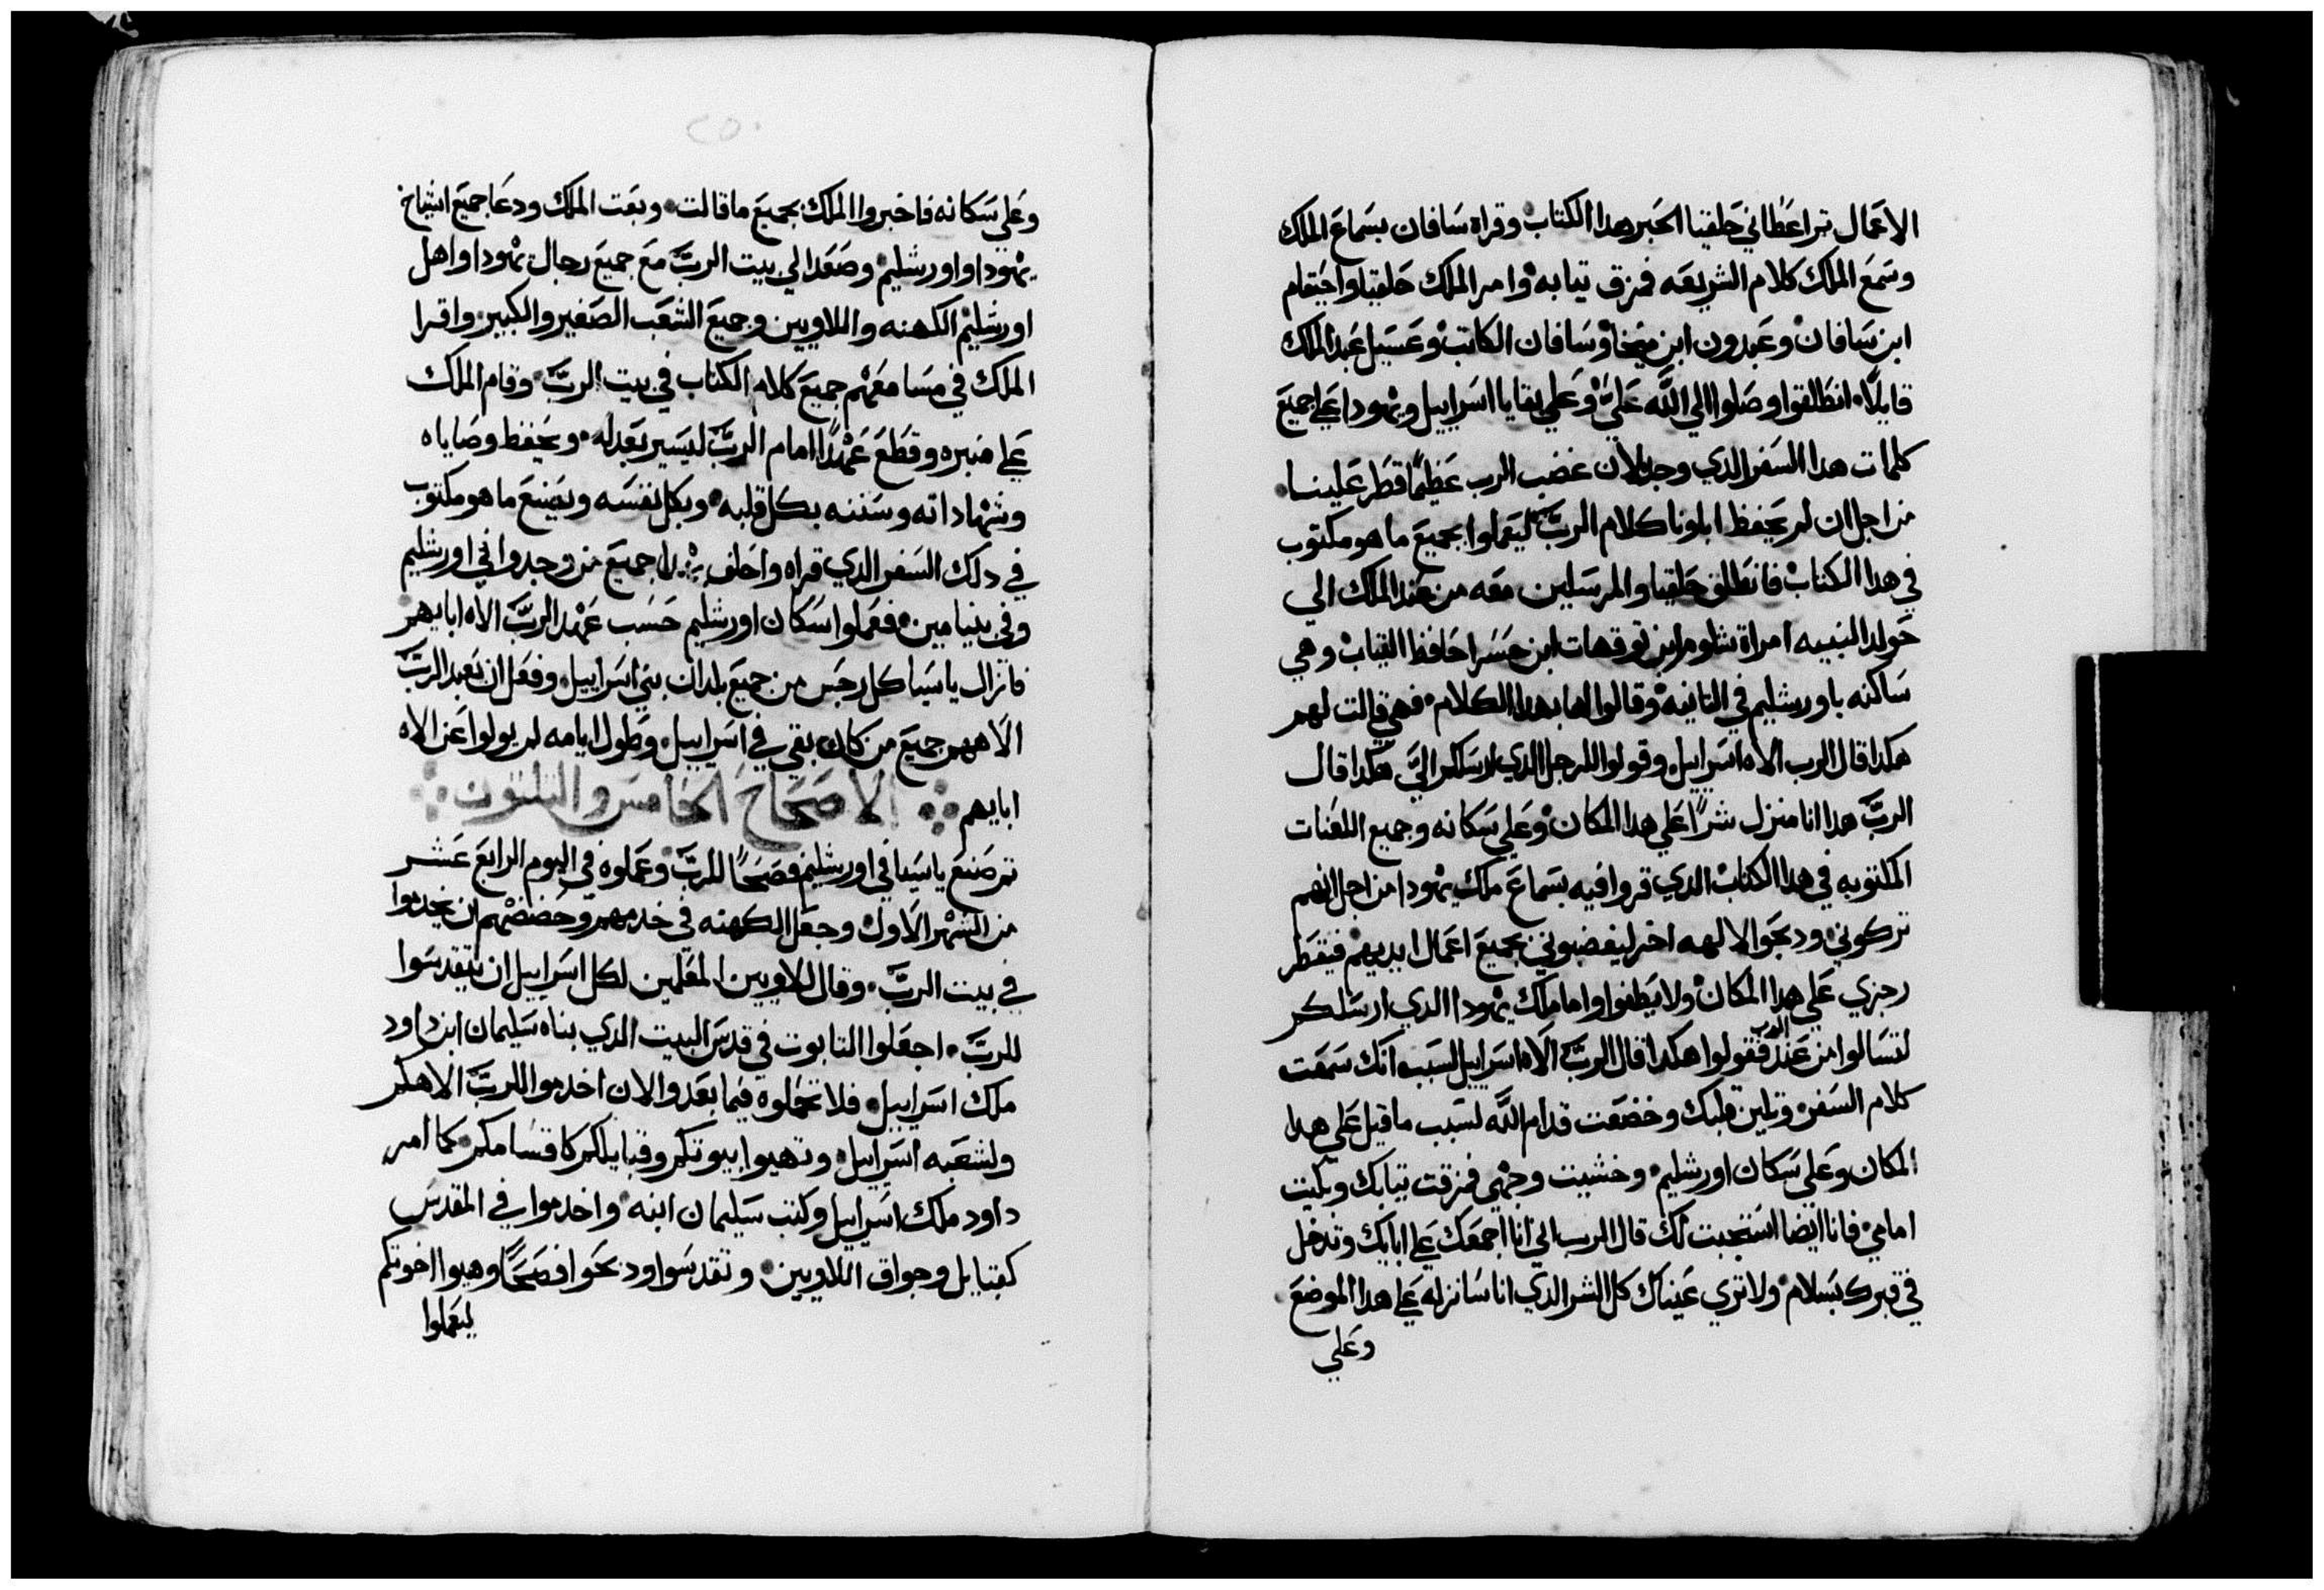 الاعمال تم اعطاني حلقيا الحبر هدا الكتاب وقراه سافان بسماع الملك
وسمع الملك كلام الشريعه فمزق تيابه وامر الملك حلقيا واحيقام
ابن سافان وعبدون ابن ميخا وسافان الكاتب وعسيل عبد الملك
قايلاً انطلقوا وصلوا الي الله عليّ وعلي بقايا اسراييل ويهودا علي جميع
كلمات هدا السفر الدي وجد لان غضب الرب عظيماً قطر علينا
من اجل ان لم يحفظ اباونا كلام الربّ ليعملوا بجميع ما هو مكتوب
في هدا الكتاب فانطلق حلقيا والمرسلين معه من عند الملك الي
حولدا النبيه امراة شلوم ابن توقهات ابن حسرا حافظ التياب وهي
ساكنه باورشليم في التانيه وقالوا لها بهدا الكلام فهي قالت لهم
هكدا قال الرب الاه اسراييل وقولوا للرجل الدي ارسلكم اليّ هكدا قال
الربّ هدا انا منزل شراً علي هدا المكان وعلي سكانه وجميع اللعنات
المكتوبه في هدا الكتاب الدي قروا فيه بسماع ملك يهودا من اجل انهم
تركوني ودبحوا لالهه اخر ليغضبوني بجميع اعمال ايديهم فيقطر
رجزي علي هدا المكان ولا يطفوا واما ملك يهودا الدي ارسلكم
لتسالوا من عند الرب فقولوا هكدا قال الربّ الاه اسراييل لسبب انك سمعت
كلام السفر وتلين قلبك وخضعت قدام الله لسبب ما قيل علي هدا
المكان وعلي سكان اورشليم وخشيت وجهي فمزقت تيابك وبكيت
امامي فانا ايضا استجبت لك قال الرب اني انا اجمعك علي ابايك وتدخل
في قبرك بسلام ولا تري عيناك كل الشر الدي انا سانزله علي هدا الموضع
وعلي
٢٥٠
وعلي سكانه فاخبروا الملك بجميع ما قالت وبعت الملك ودعا جميع اشياخ
يهودا واورشليم وصعد الي بيت الربّ مع جميع رجال يهودا واهل
اورشليم الكهنه واللاويين وجميع الشعب الصغير والكبير واقرا
الملك في مسامعهم جميع كلام الكتاب في بيت الربّ وقام الملك
علي منبره وقطع عهداً امام الربّ ليسير بعدله ويحفظ وصاياه
وشهاداته وسننه بكل قلبه وبكل نفسه ويصنع ما هو مكتوب
في دلك السفر الدي قراه واحلف بهدا جميع من وجدوا في اورشليم
وفي بنيامين فعملوا سكان اورشليم حسب عهد الربّ الاه ابايهم
فازال ياسيا كل رجس من جميع بلدان بني اسراييل وفعل ان تعبد الربّ
الاههم جميع من كان بقي في اسراييل وطول ايامه لم يولوا عن الاه
ابايهم الاصحاح الخامس والتلتون
تم صنع ياسيا في اورشليم فصحاً للربّ وعملوه في اليوم الرابع عشر
من الشهر الاول وجعل الكهنه في خدمهم وحضضهم ان يخدموا
في بيت الربّ وقال للاويين المعلمين لكل اسراييل ان يتقدسوا
للربّ اجعلوا التابوت في قدس البيت الدي بناه سليمان ابن داود
ملك اسراييل فلا تحملوه فيما بعد والان اخدموا للربّ الاهكم
ولشعبه اسراييل وتهيوا بيوتكم وقبايلكم كاقسامكم كما امر
داود ملك اسراييل وكتب سليمان ابنه واخدموا في المقدس
كقبايل وجواق اللاويين وتقدسوا ودبحوا فصحاً وهيوا اخوتكم
ليعملوا